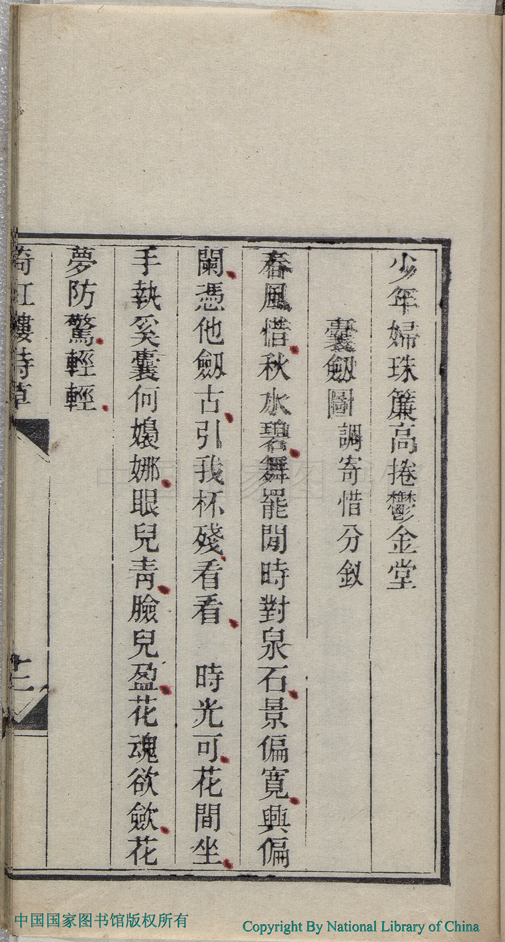 少年婦珠簾高捲鬱金堂
囊劔圖調寄惜分釵
春風惜秋水碧舞罷閒時對泉石景偏寛興偏
闌憑他劔古引我杯殘看看　時光可花間坐
手執奚囊何嬝娜眼兒青臉兒盈花魂欲歛花
夢防驚輕輕
綺紅樓詩草
十二
中国国家图书馆版权所有
Copyright By National Library of China